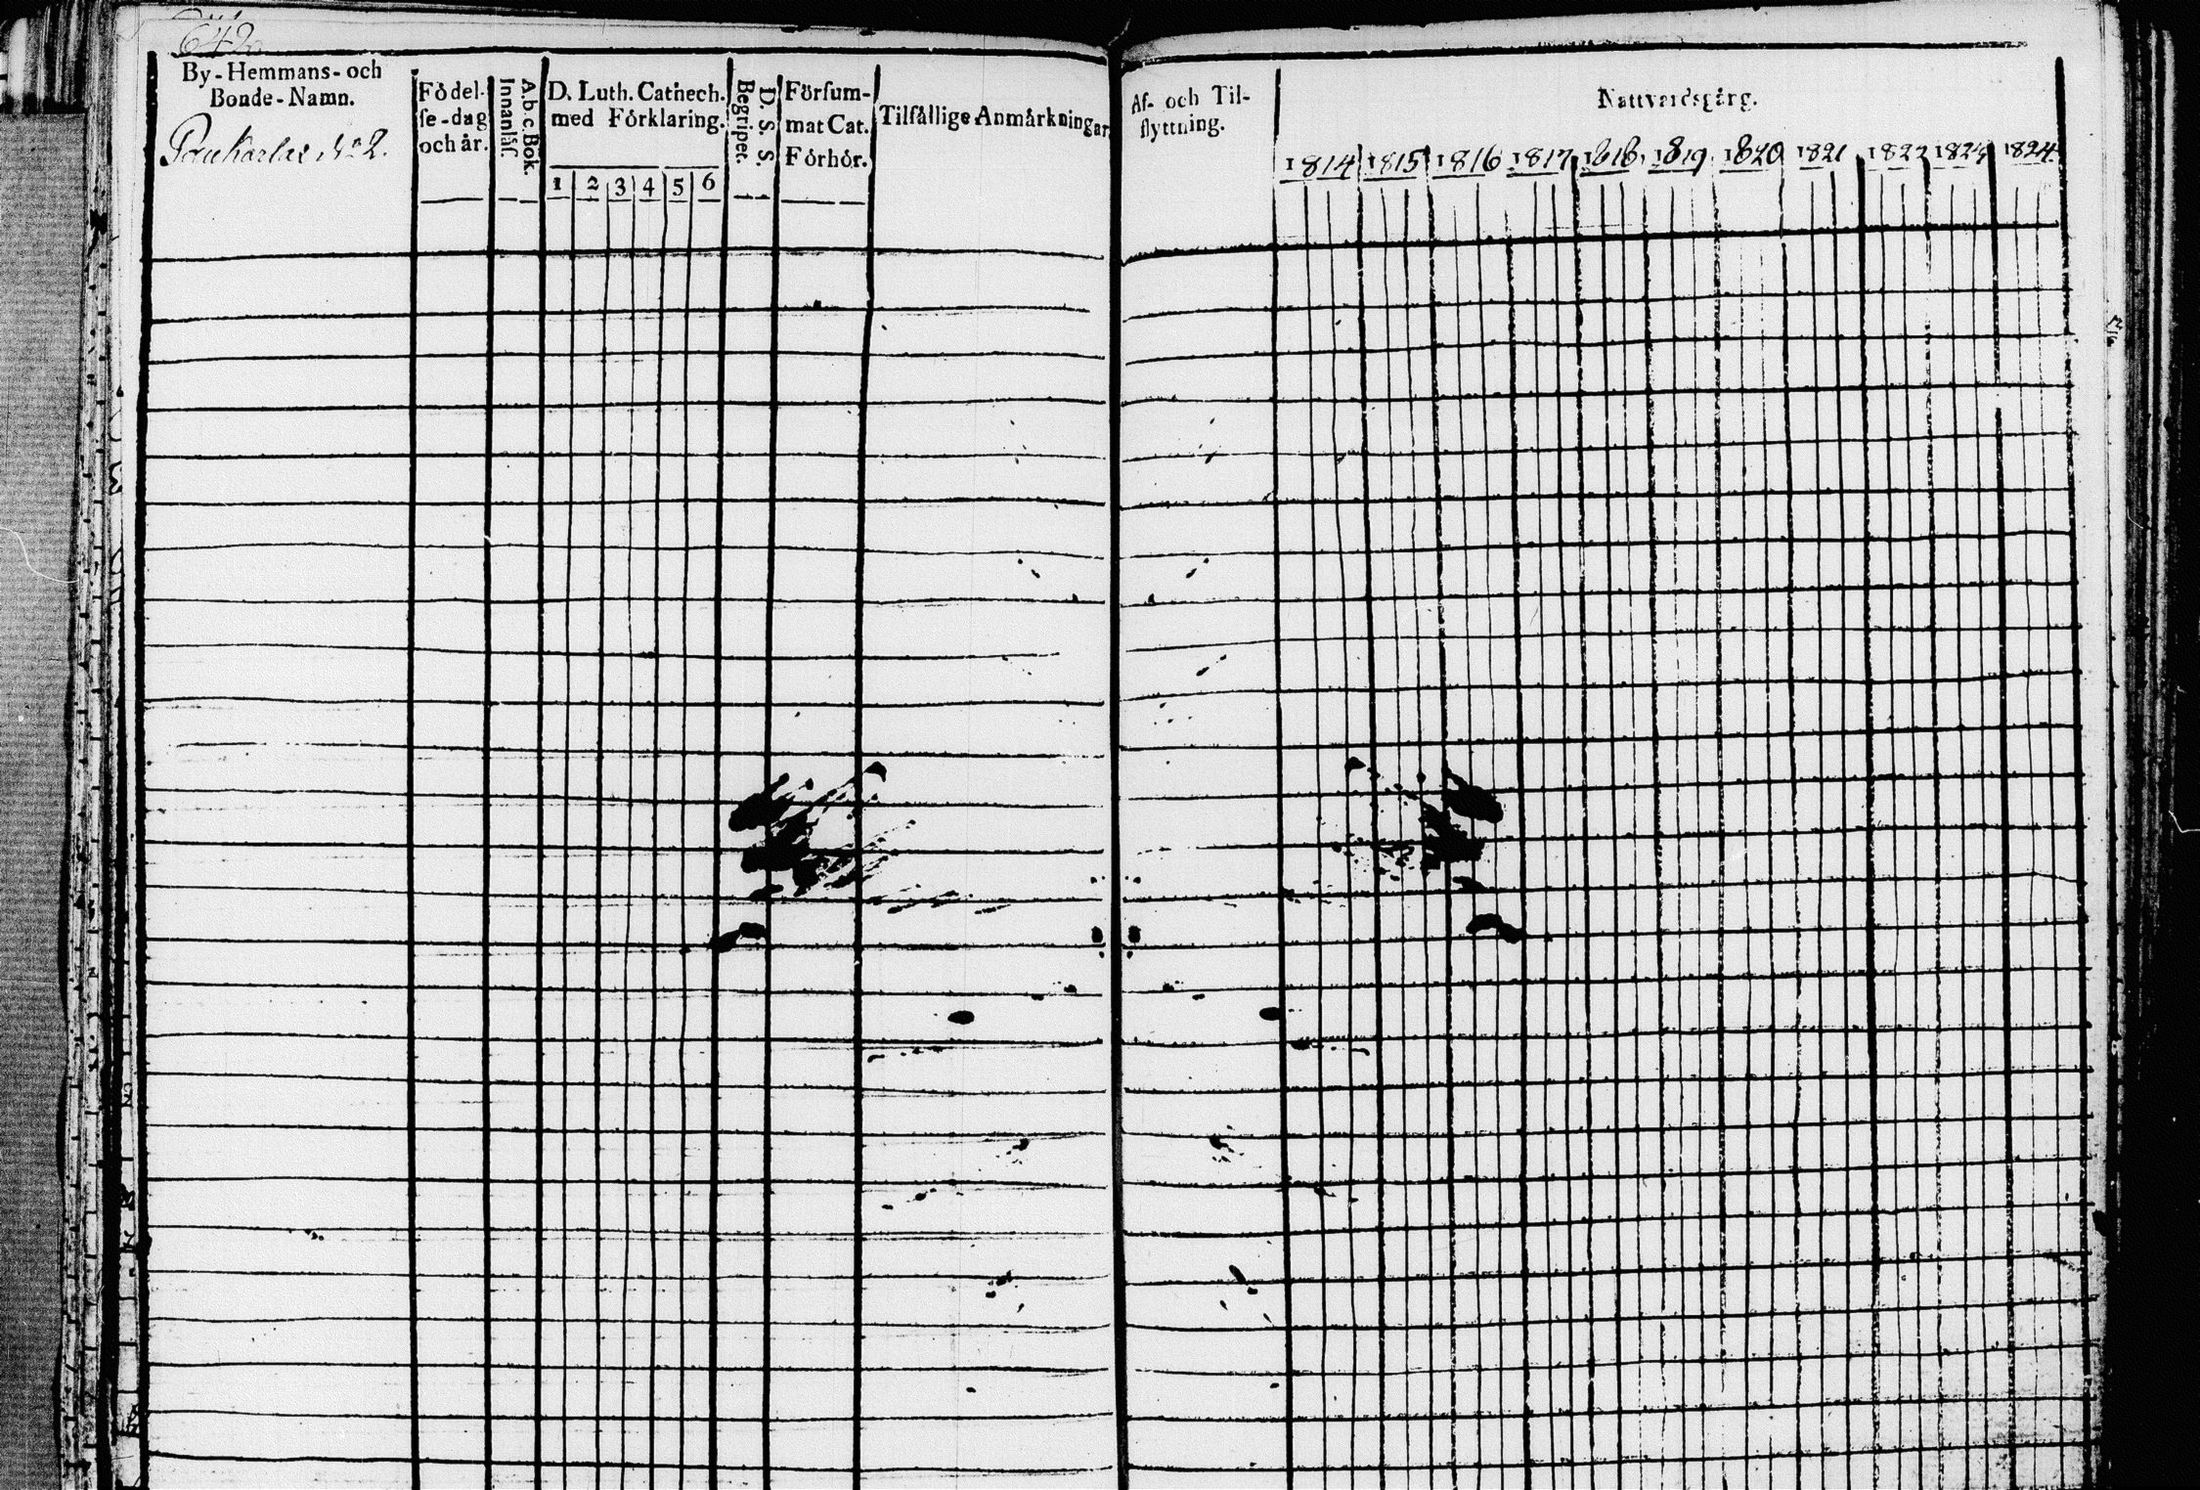 642.
By-Hemmans- och
Bonde-Namn.
No 2.
Födel-
se-dag
och år.
A.b.c.Bok.
Innanläs.
D. Luth. Cathech.
med Förklaring.
1 2 3 4 5 6
D. S. S.
Begriper.
Försum-
mat Cat.
Förhör.
Tilfällige Anmärkningar.
Af- och Til-
flyttning.
Nattvardsgång.
1814 1815 1816 1817 1818 1819 1820 1821 1822 1823 1824